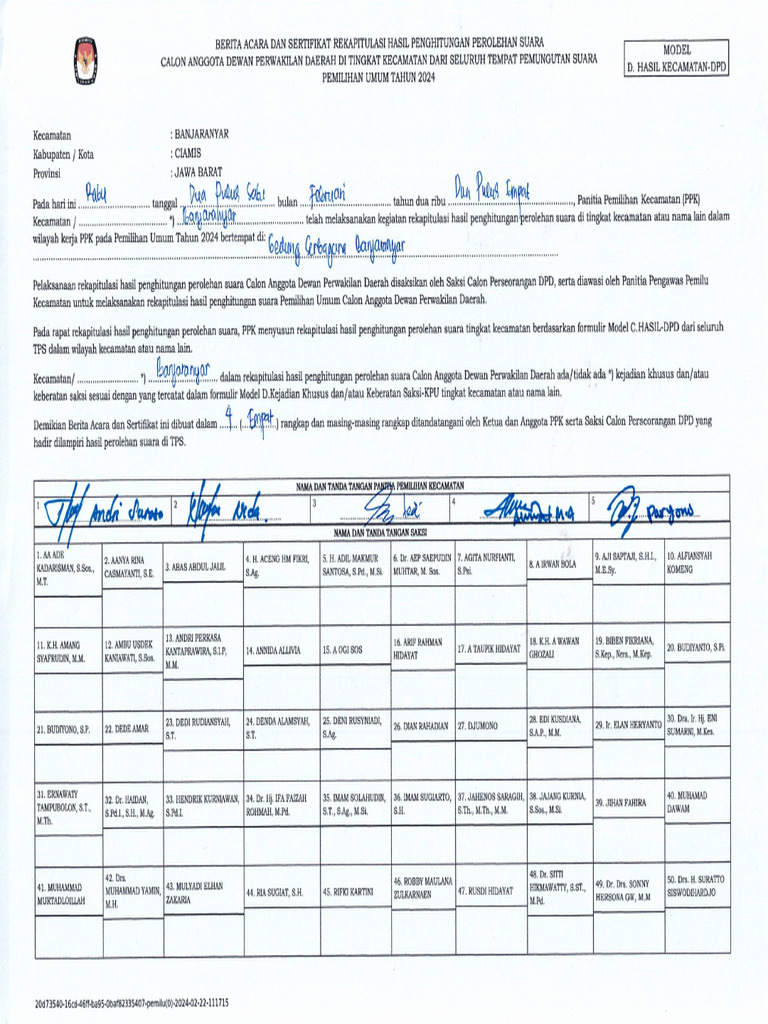 BERITA ACARA DAN SERTIFIKAT REKAPITULASI HASIL PENGHITUNGAN PEROLEHAN SUARA
CALON ANGGOTA DEWAN PERWAKILAN DAERAH DI TINGKAT KECAMATAN DARI SELURUH TEMPAT PEMUNGUTAN SUARA
PEMILIHAN UMUM TAHUN 2024
MODEL
D. HASIL KECAMATAN-DPD
Kecamatan : BANJARANYAR
Kabupaten / Kota : CIAMIS
Provinsi : JAWA BARAT
Pada hari ini Rabu tanggal Dua Puluh Satu bulan Februari tahun dua ribu Dua Puluh Empat, Panitia Pemilihan Kecamatan (PPK)
Kecamatan / ........................ *) Banjaranyar telah melaksanakan kegiatan rekapitulasi hasil penghitungan perolehan suara di tingkat kecamatan atau nama lain dalam
wilayah kerja PPK pada Pemilihan Umum Tahun 2024 bertempat di: Gedung Serbaguna Banjaranyar
Pelaksanaan rekapitulasi hasil penghitungan perolehan suara Calon Anggota Dewan Perwakilan Daerah disaksikan oleh Saksi Calon Perseorangan DPD, serta diawasi oleh Panitia Pengawas Pemilu
Kecamatan untuk melaksanakan rekapitulasi hasil penghitungan suara Pemilihan Umum Calon Anggota Dewan Perwakilan Daerah.
Pada rapat rekapitulasi hasil penghitungan perolehan suara, PPK menyusun rekapitulasi hasil penghitungan perolehan suara tingkat kecamatan berdasarkan formulir Model C.HASIL-DPD dari seluruh
TPS dalam wilayah kecamatan atau nama lain.
Kecamatan/ ..................... *) Banjaranyar dalam rekapitulasi hasil penghitungan perolehan suara Calon Anggota Dewan Perwakilan Daerah ada/tidak ada *) kejadian khusus dan/atau
keberatan saksi sesuai dengan yang tercatat dalam formulir Model D.Kejadian Khusus dan/atau Keberatan Saksi-KPU tingkat kecamatan atau nama lain.
Demikian Berita Acara dan Sertifikat ini dibuat dalam 4 (Empat) rangkap dan masing-masing rangkap ditandatangani oleh Ketua dan Anggota PPK serta Saksi Calon Perseorangan DPD yang
hadir dilampiri hasil perolehan suara di TPS.
NAMA DAN TANDA TANGAN PANITIA PEMILIHAN KECAMATAN
1 Andri 2 3 4 5 Paryono
NAMA DAN TANDA TANGAN SAKSI
1. AA ADE KADARISMAN, S.Sos., M.T.
2. AANYA RINA CASMAYANTI, S.E.
3. ABAS ABDUL JALIL
4. H. ACENG HM FIKRI, S.Ag.
5. H. ADIL MAKMUR SANTOSA, S.Pd., M.Si.
6. Dr. AEP SAEPUDIN MUHTAR, M. Sos.
7. AGITA NURFIANTI, S.Psi.
8. A IRWAN BOLA
9. AJI SAPTAJI, S.H.I., M.E.Sy.
10. ALFIANSYAH KOMENG
11. K.H. AMANG SYAFRUDIN, M.M.
12. AMBU USDEK KANIAWATI, S.Sos.
13. ANDRI PERKASA KANTAPRAWIRA, S.I.P, M.M.
14. ANNIDA ALLIVIA
15. A OGI SOS
16. ARIF RAHMAN HIDAYAT
17. A TAUPIK HIDAYAT
18. K.H. A WAWAN GHOZALI
19. BIBEN FIKRIANA, S.Kep., Ners., M.Kep.
20. BUDIYANTO, S.Pi.
21. BUDIYONO, S.P.
22. DEDE AMAR
23. DEDI RUDIANSYAH, S.T.
24. DENDA ALAMSYAH, S.T.
25. DENI RUSYNIADI, S.Ag.
26. DIAN RAHADIAN
27. DJUMONO
28. EDI KUSDIANA, S.A.P., M.M.
29. Ir. ELAN HERYANTO
30. Dra. Ir. Hj. ENI SUMARNI, M.Kes.
31. ERNAWATY TAMPUBOLON, S.T., M.Th.
32. Dr. HAIDAN, S.Pd.I., S.H., M.Ag.
33. HENDRIK KURNIAWAN, S.Pd.I.
34. Dr. Hj. IFA FAIZAH ROHMAH, M.Pd.
35. IMAM SOLAHUDIN, S.T., S.Ag., M.Si.
36. IMAM SUGIARTO, S.H.
37. JAHENOS SARAGIH, S.Th., M.Th., M.M.
38. JAJANG KURNIA, S.Sos., M.Si.
39. JIHAN FAHIRA
40. MUHAMAD DAWAM
41. MUHAMMAD MURTADLOILLAH
42. Drs. MUHAMMAD YAMIN, M.H.
43. MULYADI ELHAN ZAKARIA
44. RIA SUGIAT, S.H.
45. RIFKI KARTINI
46. ROBBY MAULANA ZULKARNAEN
47. RUSDI HIDAYAT
48. Dr. SITTI HIKMAWATTY, S.ST., M.Pd.
49. Dr. Drs. SONNY HERSONA GW, M.M
50. Drs. H. SURATTO SISWODIHARDJO
20d73540-16cd-46ff-ba95-0baf82335407-pemilu(0)-2024-02-22-111715